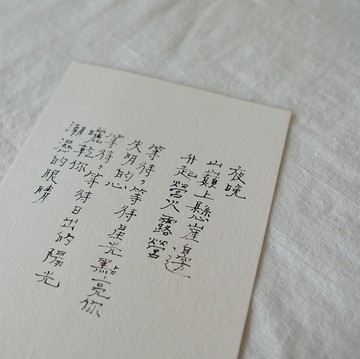 夜晚
山巔上懸崖身邊
升起營火露營
等待，等待星光點亮你
失明的心
等待，等待日出的陽光
曬乾你
潮濕的眼睛